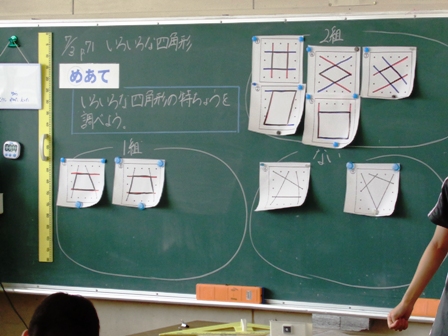 7/2 p71 いろいろな四角形
めあて
いろいろな四角形の特ちょうを
調べよう。
1組
2組